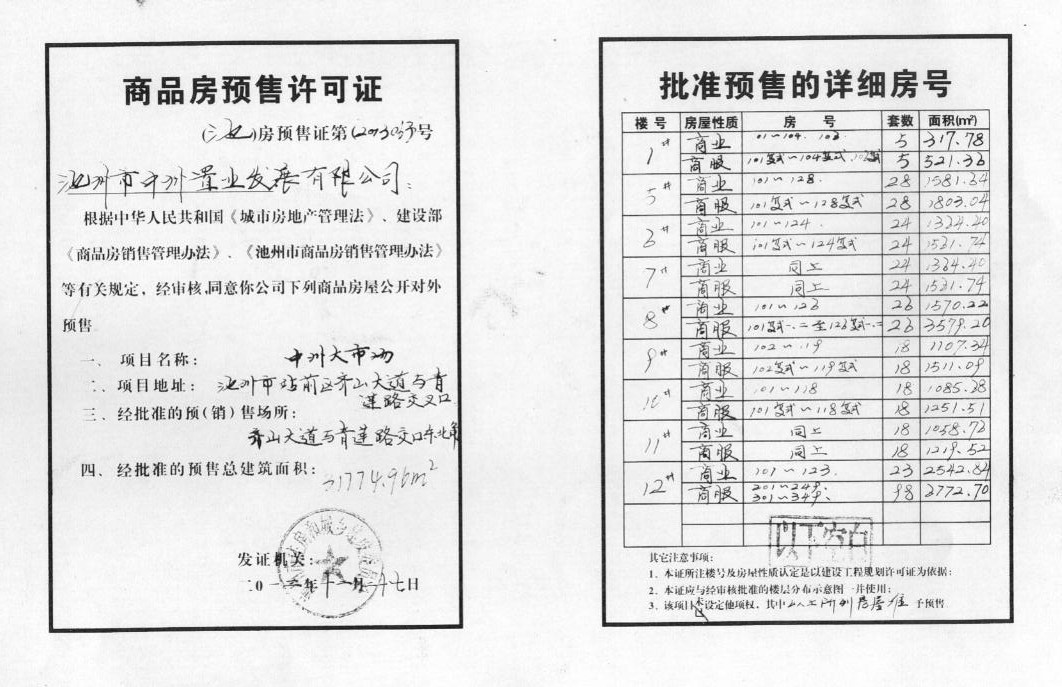 商品房预售许可证
(池)房预售证第(2013053)号
池州市中州置业发展有限公司：
根据中华人民共和国《城市房地产管理法》、建设部
《商品房销售管理办法》、《池州市商品房销售管理办法》
等有关规定，经审核,同意你公司下列商品房屋公开对外
预售
一、项目名称： 中州大市场
二、项目地址： 池州市站前区齐山大道与青
莲路交叉口
三、经批准的预(销)售场所：
齐山大道与青莲路交口东北角
四、经批准的预售总建筑面积：
31774.96m²
发证机关：
二0一三年十一月二十七日
批准预售的详细房号
楼号 房屋性质 房号 套数 面积(m²)
1# 商业 01～104. 5 317.78
商服 101复式～104复式 5 521.33
5# 商业 101～128. 28 1581.34
商服 101复式～128复式 28 1803.04
3# 商业 101～124. 24 1334.40
商服 101复式～124复式 24 1531.74
7# 商业 同上 24 1334.40
商服 同上 24 1531.74
8# 商业 101～123 23 1570.22
商服 101复式一.二至123复式一.二 23 3579.20
9# 商业 102～119 18 1107.34
商服 102复式～119复式 18 1511.09
10# 商业 101～118 18 1085.38
商服 101复式～118复式 18 1251.51
11# 商业 同上 18 1058.73
商服 同上 18 1219.52
12# 商业 101～123. 23 2542.84
商服 201～249. 301～349. 98 3772.70
以下空白
其它注意事项：
1、本证所注楼号及房屋性质认定是以建设工程规划许可证为依据；
2、本证应与经审核批准的楼层分布示意图一并使用；
3、该项目未设定他项权，其中以上所列房屋准予预售